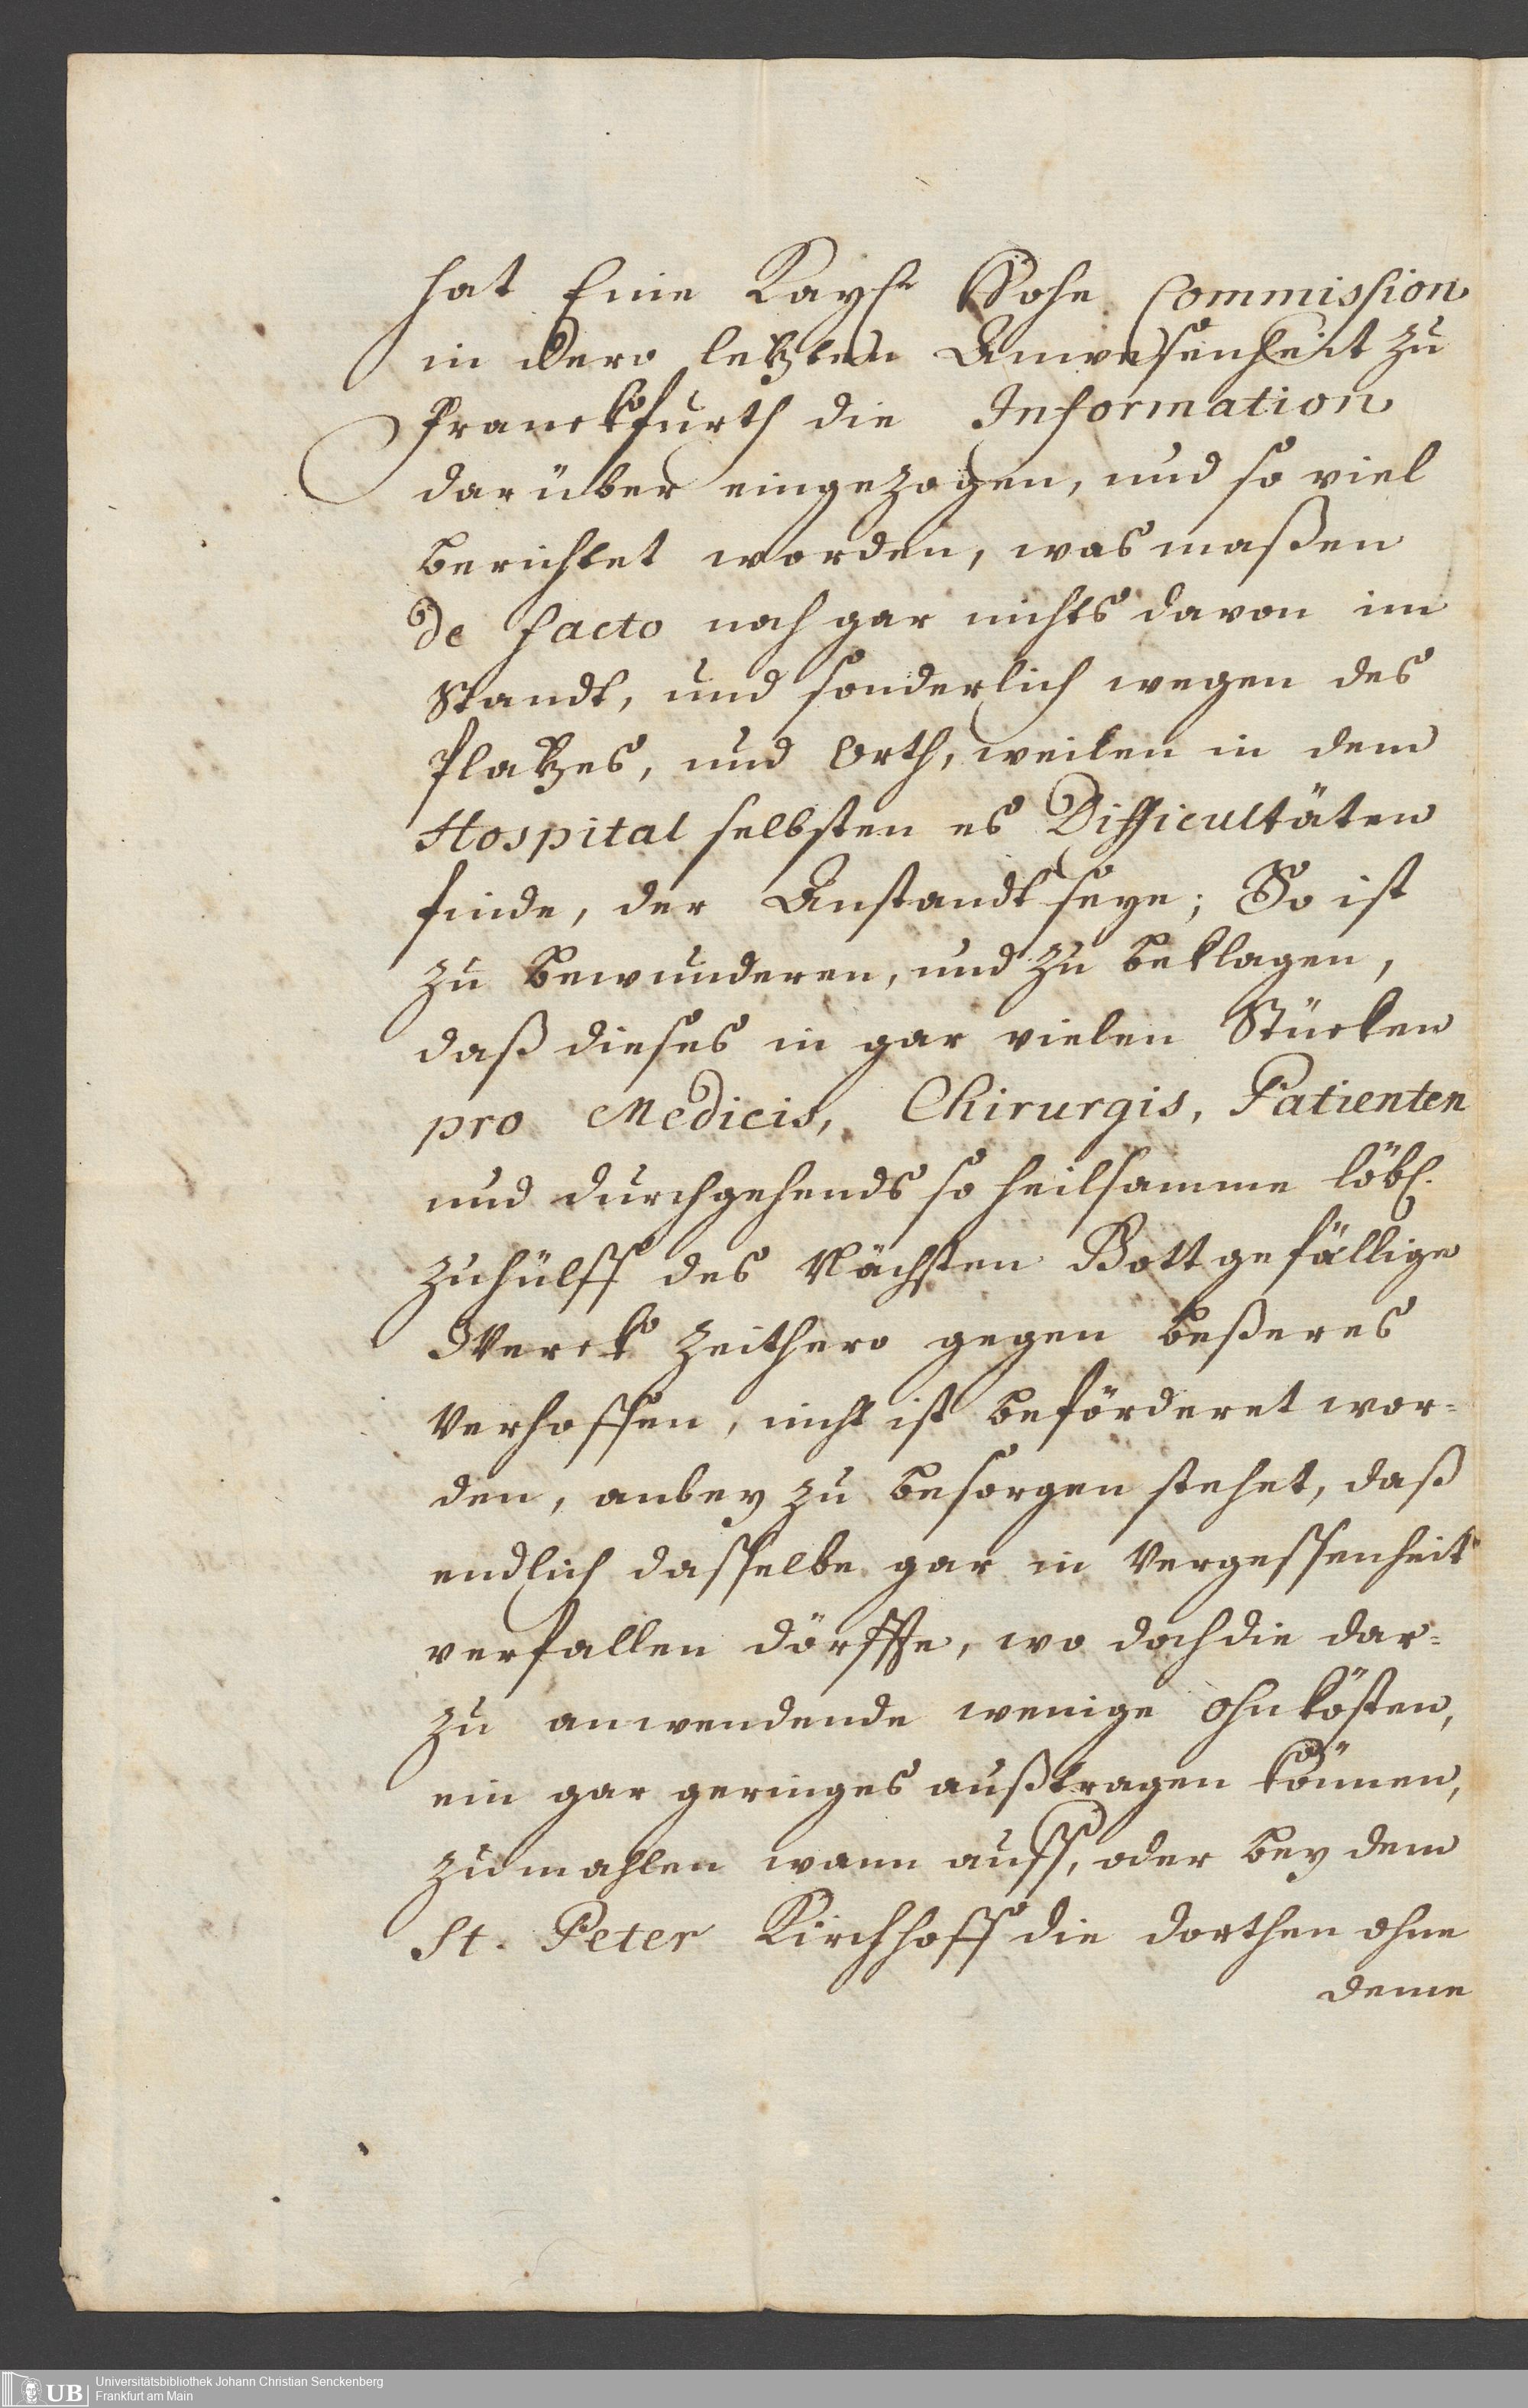 hat Eine Kayſr Hohe Commission
in dero letzten Anweſenheit zu
Franckfurth die Information
darüber eingezogen, und ſo viel
berichtet worden, was maßen
de facto noch gar nichts davon im
Standt, und ſonderlich wegen des
Platzes, und Orth, weilen in dem
Hospital ſelbsten es Difficultäten
finde, der Anstandt ſeye; So ist
zu bewunderen, und zu beklagen,
daß dieſes in gar vielen Stücken
pro Medicis, Chirurgis, Patienten
und durchgehends ſo heilſamme löbl.
zuhülff des Nächsten Gott gefällige
Werck zeithero gegen beßeres
Verhoffen, nicht ist beförderet wor=
den, anbey zu beſorgen stehet, daß
endlich daſſelbe gar in Vergeſſenheit
verfallen dörffte, wo doch die dar=
zu anwendende wenige Ohnkösten,
ein gar geringes außtragen können,
zumahlen wann auff, oder bey dem
St. Peter Kirchhoff die dorthen ohne
deme
UB Universitätsbibliothek Johann Christian Senckenberg
Frankfurt am Main